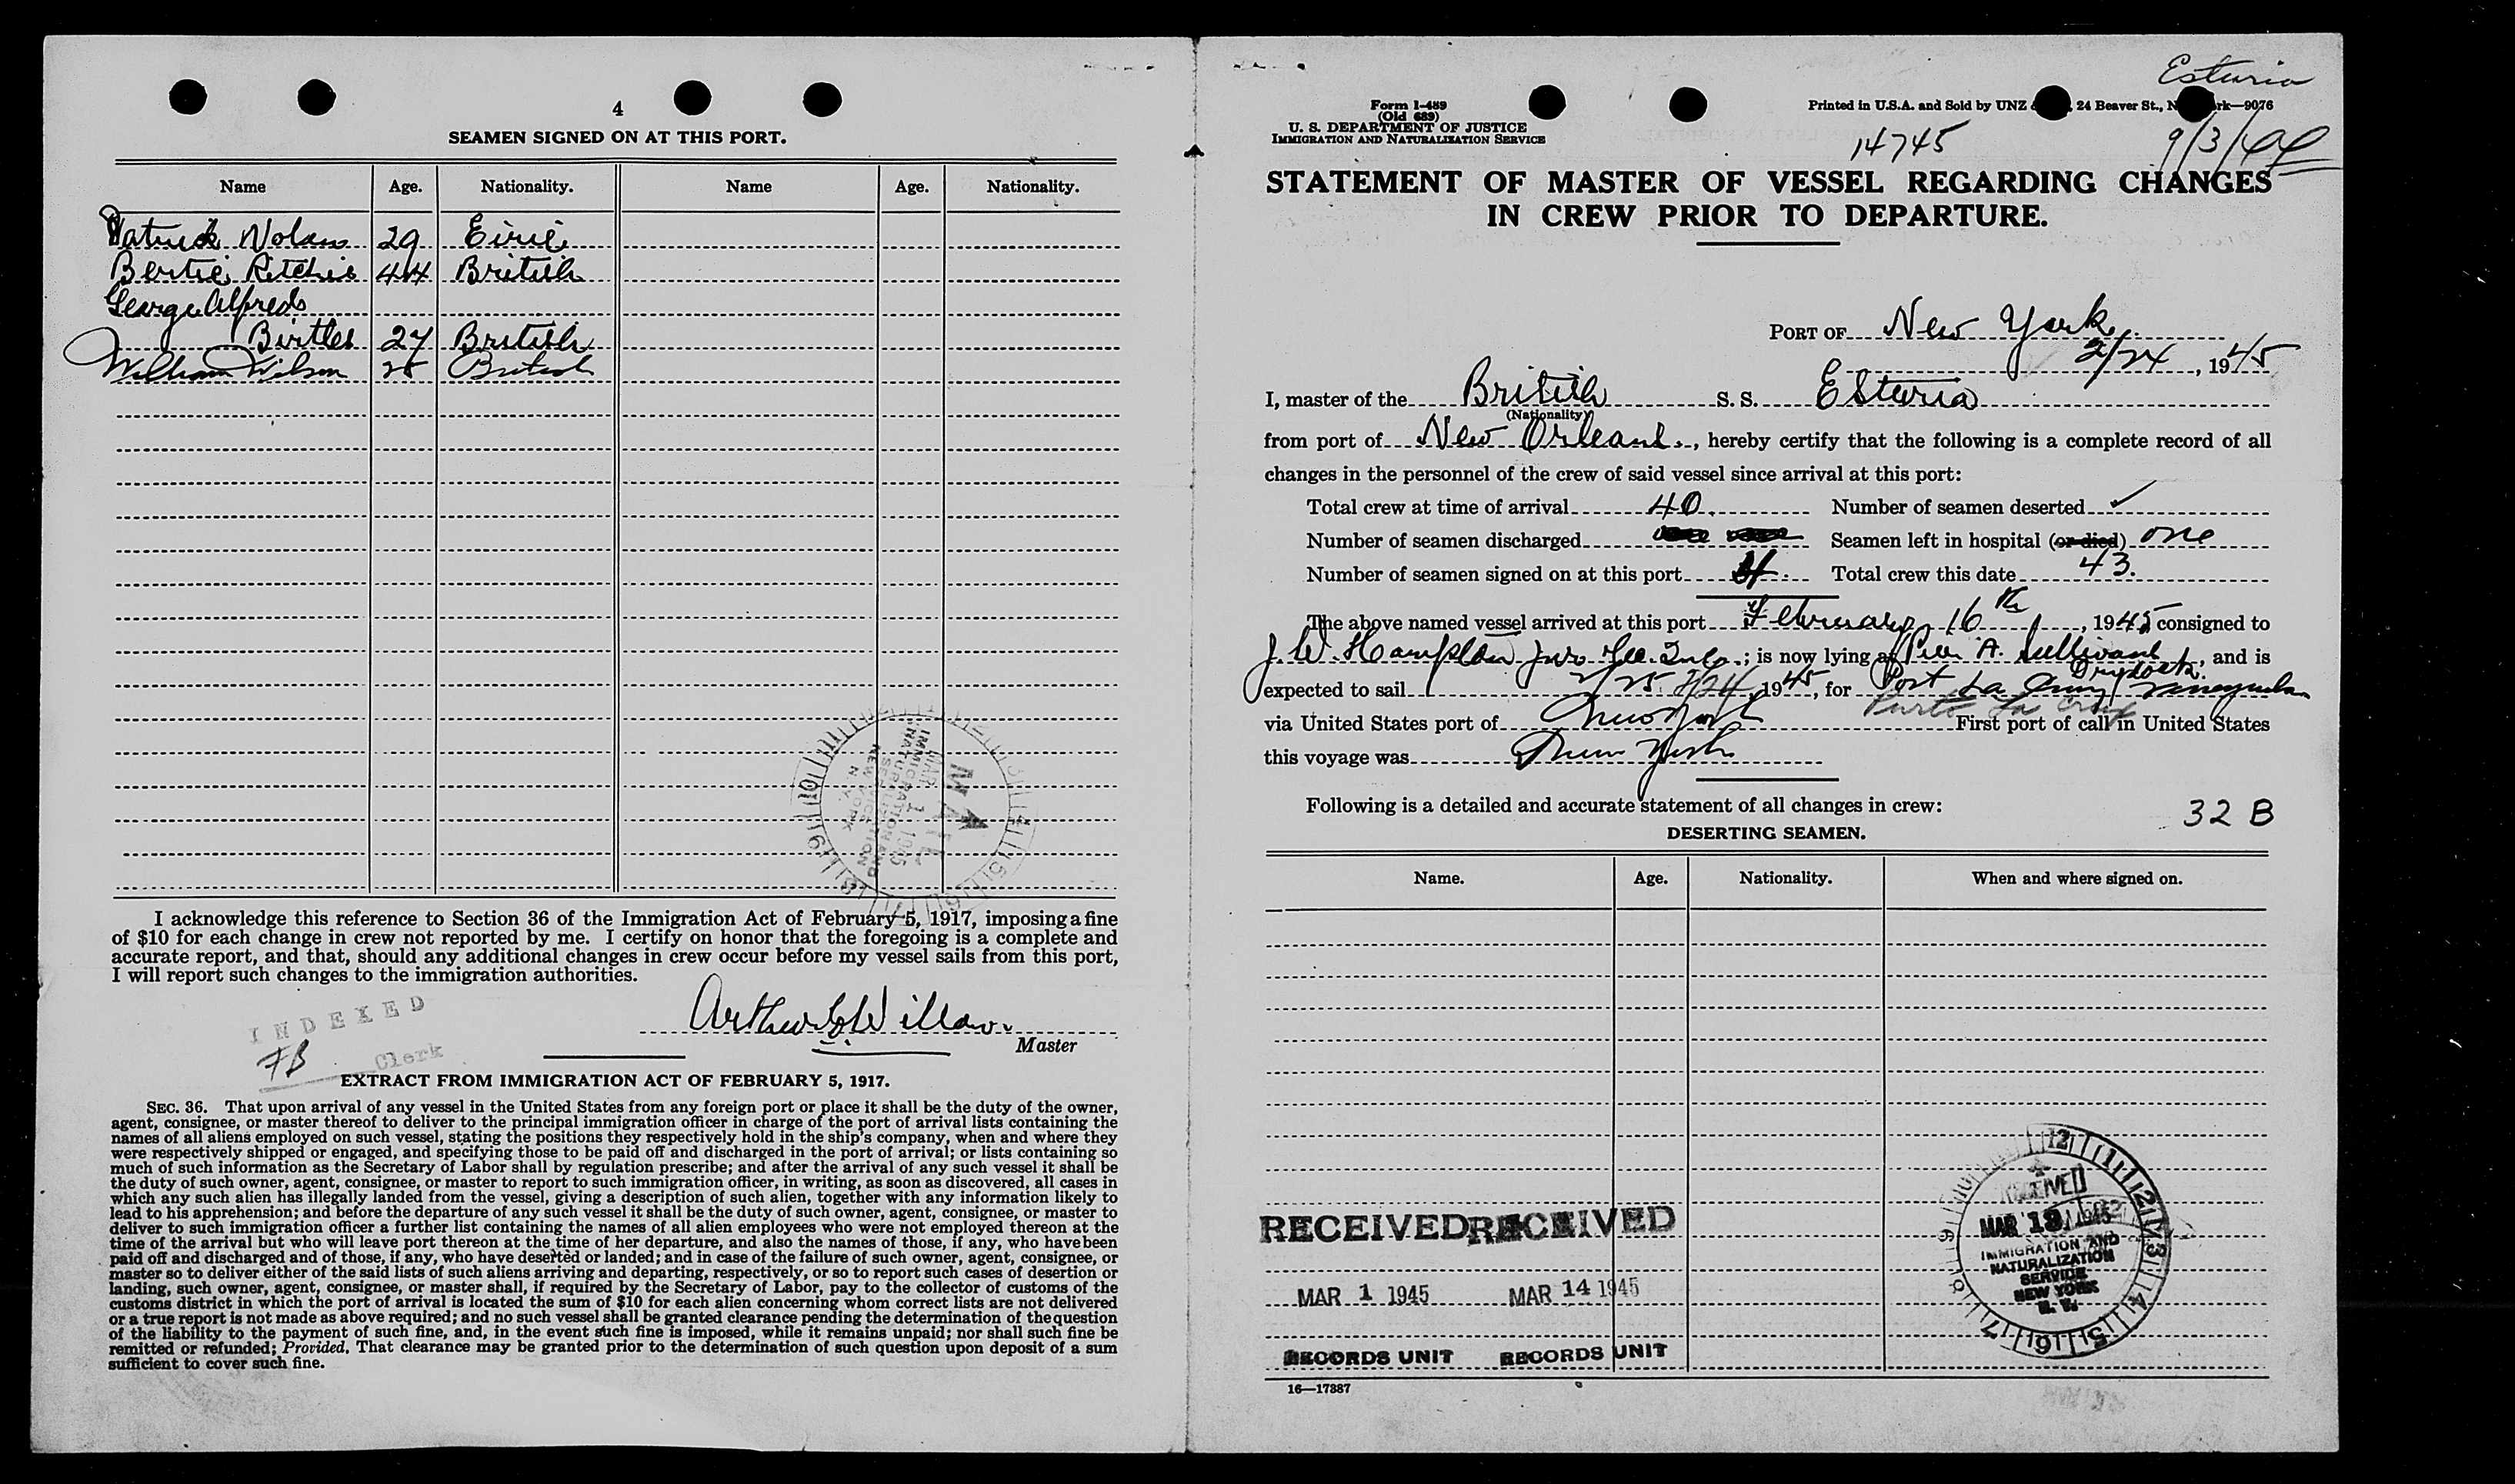 4
SEAMEN SIGNED ON AT THIS PORT.
Name Age. Nationality. Name Age. Nationality.
Patrick Nolan 29 Eirie
Bertie Ritchie 44 British
George Alfred
Birtles 27 British
William Wilson 25 British
MAIL
MAR 1 1945
IMMIGRATION AND
NATURALIZATION
SERVICE
NEW YORK
N. Y.
I acknowledge this reference to Section 36 of the Immigration Act of February 5, 1917, imposing a fine
of $10 for each change in crew not reported by me. I certify on honor that the foregoing is a complete and
accurate report, and that, should any additional changes in crew occur before my vessel sails from this port,
I will report such changes to the immigration authorities.
INDEXED
FB Clerk
Arthur Willan.
Master
EXTRACT FROM IMMIGRATION ACT OF FEBRUARY 5, 1917.
SEC. 36. That upon arrival of any vessel in the United States from any foreign port or place it shall be the duty of the owner,
agent, consignee, or master thereof to deliver to the principal immigration officer in charge of the port of arrival lists containing the
names of all aliens employed on such vessel, stating the positions they respectively hold in the ship's company, when and where they
were respectively shipped or engaged, and specifying those to be paid off and discharged in the port of arrival; or lists containing so
much of such information as the Secretary of Labor shall by regulation prescribe; and after the arrival of any such vessel it shall be
the duty of such owner, agent, consignee, or master to report to such immigration officer, in writing, as soon as discovered, all cases in
which any such alien has illegally landed from the vessel, giving a description of such alien, together with any information likely to
lead to his apprehension; and before the departure of any such vessel it shall be the duty of such owner, agent, consignee, or master to
deliver to such immigration officer a further list containing the names of all alien employees who were not employed thereon at the
time of the arrival but who will leave port thereon at the time of her departure, and also the names of those, if any, who have been
paid off and discharged and of those, if any, who have deserted or landed; and in case of the failure of such owner, agent, consignee, or
master so to deliver either of the said lists of such aliens arriving and departing, respectively, or so to report such cases of desertion or
landing, such owner, agent, consignee, or master shall, if required by the Secretary of Labor, pay to the collector of customs of the
customs district in which the port of arrival is located the sum of $10 for each alien concerning whom correct lists are not delivered
or a true report is not made as above required; and no such vessel shall be granted clearance pending the determination of the question
of the liability to the payment of such fine, and, in the event such fine is imposed, while it remains unpaid; nor shall such fine be
remitted or refunded; Provided, That clearance may be granted prior to the determination of such question upon deposit of a sum
sufficient to cover such fine.
Esturia
Form I-489
(Old 689)
U. S. DEPARTMENT OF JUSTICE
IMMIGRATION AND NATURALIZATION SERVICE
Printed in U.S.A. and Sold by UNZ 24 Beaver St., N rk—9076
14745
9/3/44
STATEMENT OF MASTER OF VESSEL REGARDING CHANGES
IN CREW PRIOR TO DEPARTURE.
PORT OF New York
2/24, 1945
I, master of the British S. S. Esturia
(Nationality)
from port of New Orleans., hereby certify that the following is a complete record of all
changes in the personnel of the crew of said vessel since arrival at this port:
Total crew at time of arrival 40. Number of seamen deserted ✓
Number of seamen discharged Seamen left in hospital (or died) one
Number of seamen signed on at this port 4. Total crew this date 43.
The above named vessel arrived at this port February 16th, 1945 consigned to
J. W. Hampton Jnr ; is now lying at Pier A. Sullivans Drydock., and is
expected to sail 2/25 2/24, 1945, for Port La Cruz Venezuela
Puerto La Cruz
via United States port of New York First port of call in United States
this voyage was New York
Following is a detailed and accurate statement of all changes in crew:
32 B
DESERTING SEAMEN.
Name. Age. Nationality. When and where signed on.
RECEIVED RECEIVED
MAR 1 1945 MAR 14 1945
RECORDS UNIT RECORDS UNIT
RECEIVED
MAR 13 1945
IMMIGRATION AND
NATURALIZATION
SERVICE
NEW YORK
N. Y.
16—17387